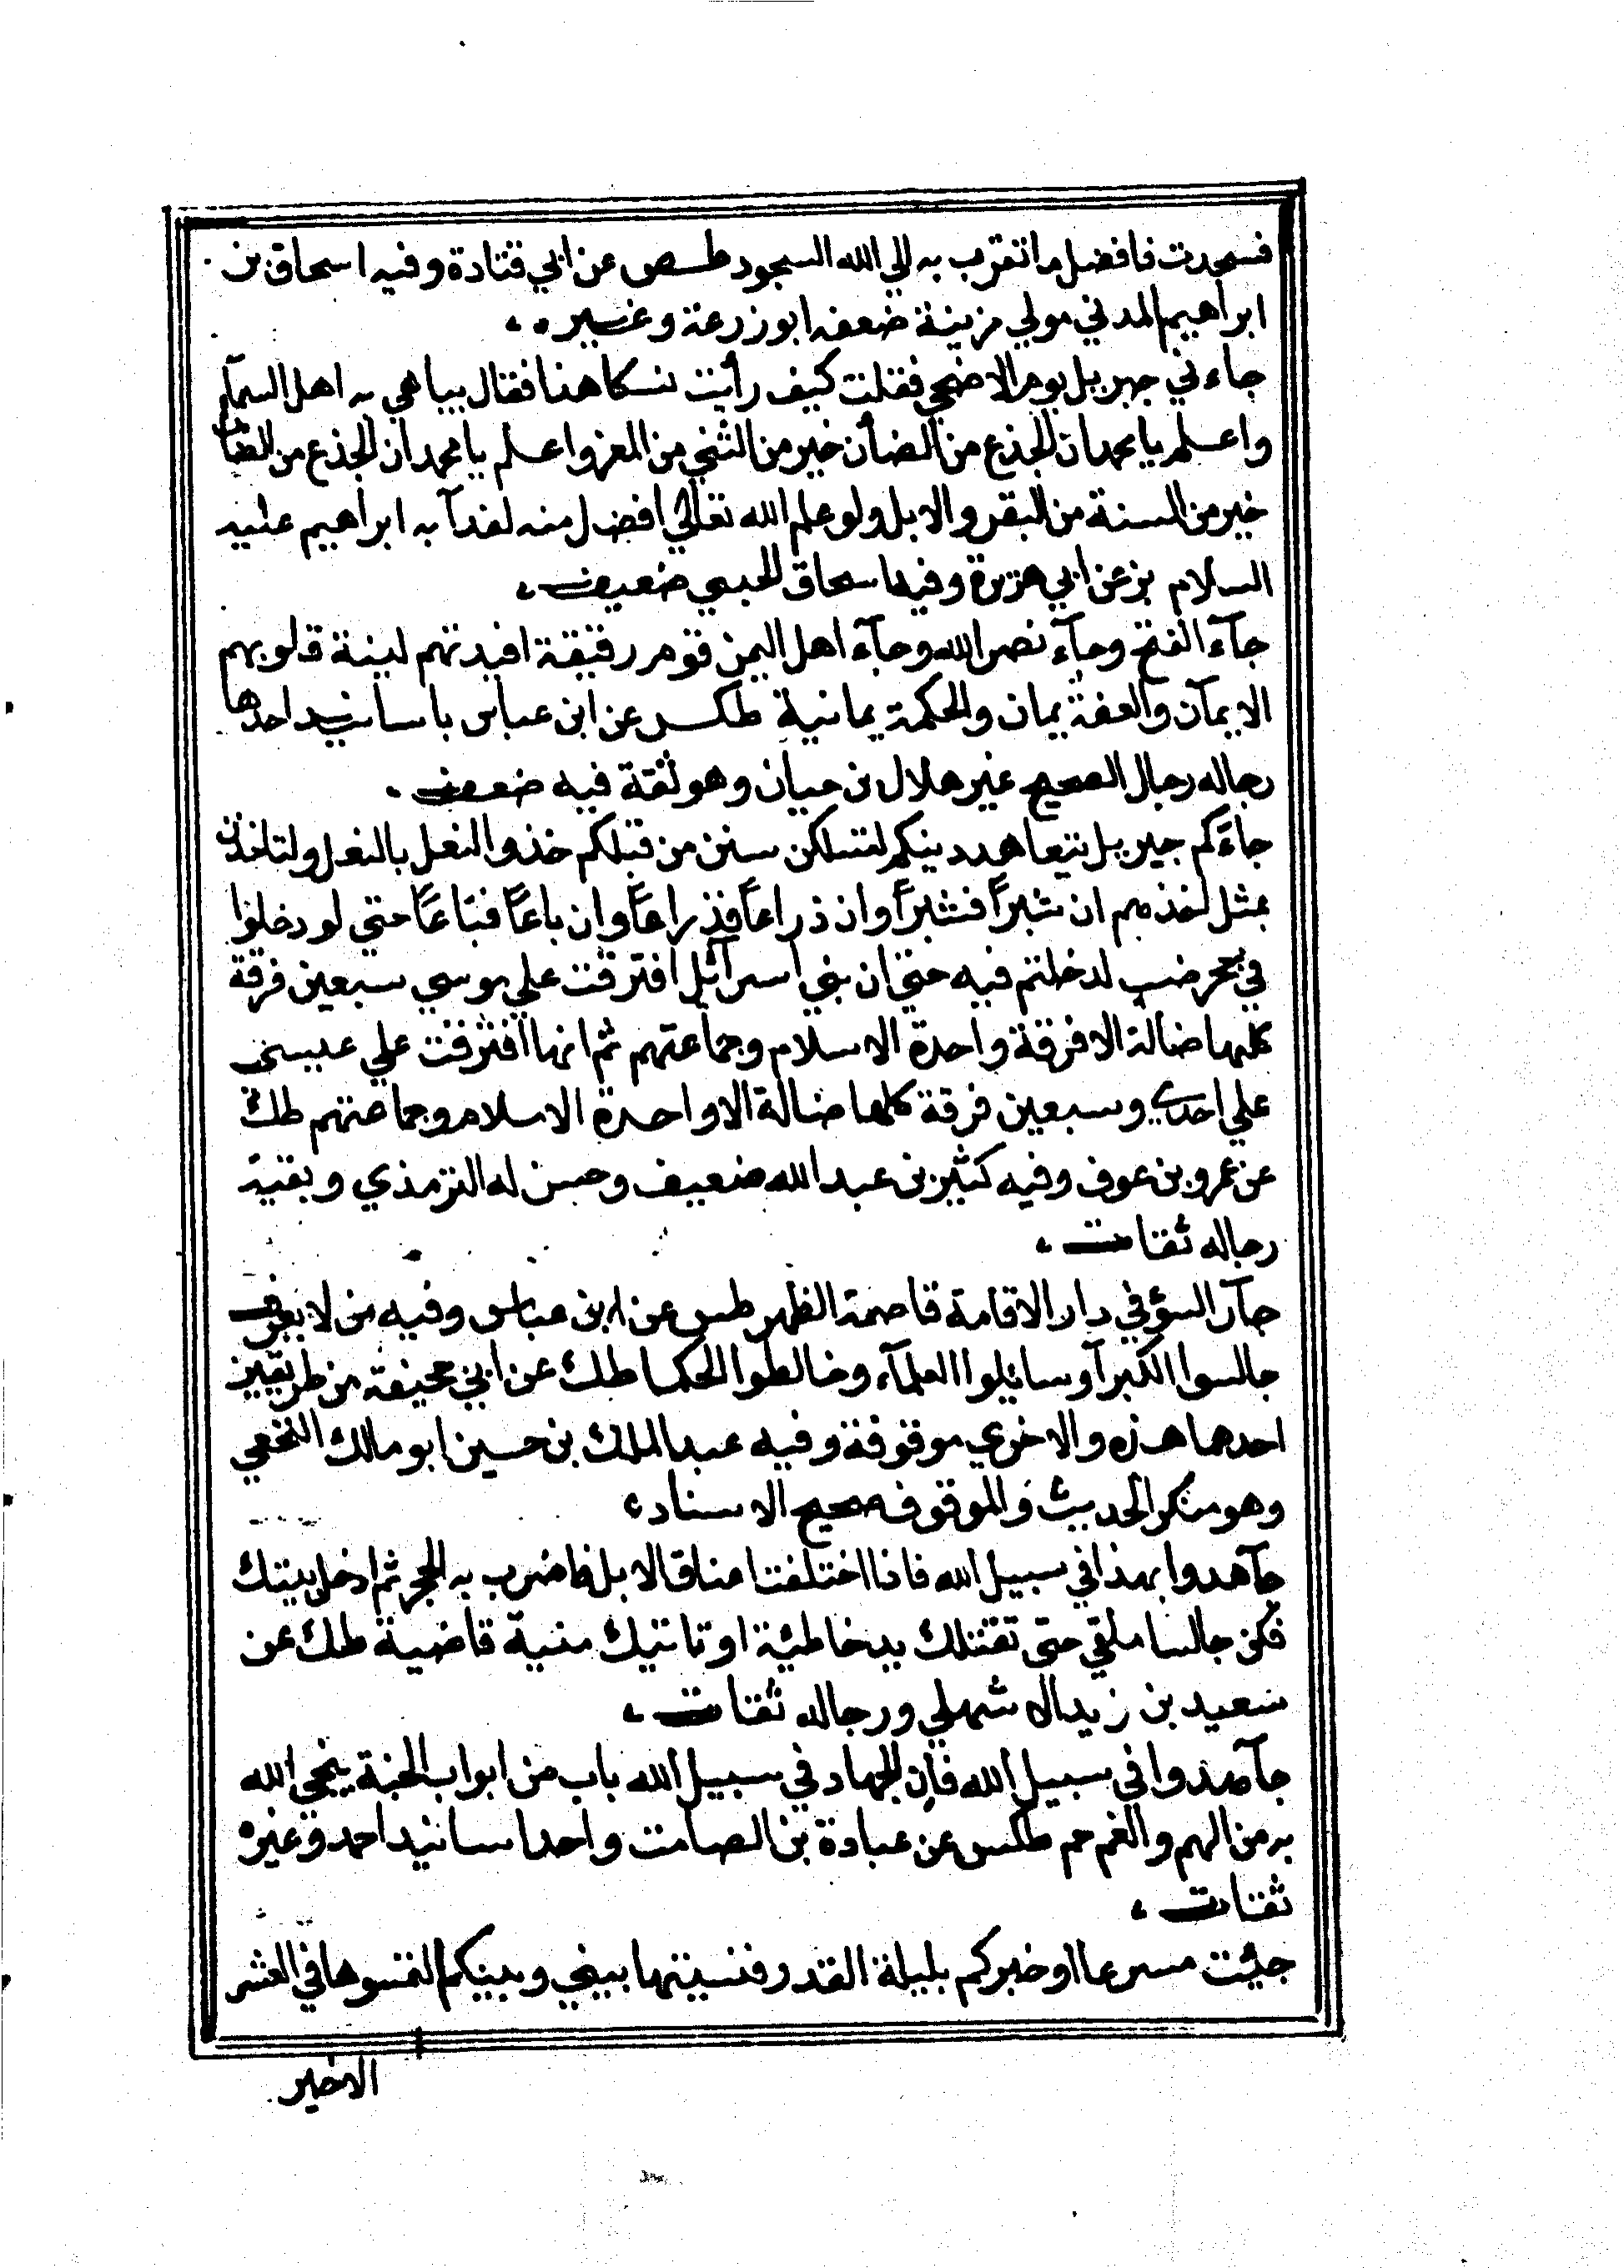 فسجدت فافضل ما تقرب به الي الله السجود طـص عن ابي قتادة وفيه اسحاق بن
ابراهيم المدني مولي مزينة ضعفه ابو زرعة وغيره
جاءني جبريل يوم الاضحي فقلت كيف رأيت نسكا هذا فقال يباهي به اهل السمآء
واعلم يا محمد ان الجذع من الضأن خير من الثني من المعز واعلم يا محمد ان الجذع من الضأن
خير من السنة من البقر والابل ولو علم الله تعالي افضل منه لفدآ به ابراهيم عليه
السلام بز عن ابي هريرة وفيه اسحاق الحبيبي ضعيف
جآء الفتح وجآء نصر الله وجآء اهل اليمن قوم رقيقة افيدتهم لينة قلوبهم
الايمآن والفقه يمان والحكمة يمانية طكس عن ابن عباس باسانيد احدها
رجاله رجال الصحيح غير هلال بن حبان وهو ثقة فيه ضعف
جاءكم جبريل يتعاهد دينكم لتسلكن سنن من قبلكم حذو النعل بالنعل ولتاخذن
بمثل اخذهم ان شبراً فشبراً وان ذراعاً فذراعاً وان باعاً فباعاً حتي لو دخلوا
في جحر ضب لدخلتم فيه حتي ان بني اسرآئل افترقت علي موسي سبعين فرقة
كلها ضالة الا فرقة واحدة الاسلام وجماعتهم ثم انها افترقت علي عيسى
علي احدي وسبعين فرقة كلها ضالة الا واحدة الاسلام وجماعتهم طك
عن عمرو بن عوف وفيه كثير بن عبد الله ضعيف وحسن له الترمذي وبقية
رجاله ثقات
جآر السؤ في دار الاقامة قاصمة الظهر طس عن ابن عباس وفيه من لا يعرف
جالسوا الكبرآ وسايلوا العلمآء وخالطوا الحكما طك عن ابي جحيفة من طريقين
احدهما هذه والاخري موقوفة وفيه عبد الملك بن حسين ابو مالك النخعي
وهو منكر الحديث والموقوف صحيح الاسناد
جآهدوا بهذا في سبيل الله فاذا اختلفت اعناق الابل فاضرب به الحجر ثم ادخل بيتك
فكن جالسا ملقي حتى تقتلك يد خاطئة او تاتيك منية قاضية طك عن
سعيد بن زيد الاشهلي ورجاله ثقات
جآهدوا في سبيل الله فان الجهاد في سبيل الله باب من ابواب الجنة ينجي الله
به من الهم والغم حم طكس عن عبادة بن الصامت واحد اسانيد احمد وغيره
ثقات
جئت مسرعا اوخبركم بليلة القدر فنسيتها بيني وبينكم التمسوها في العشر
الاخير